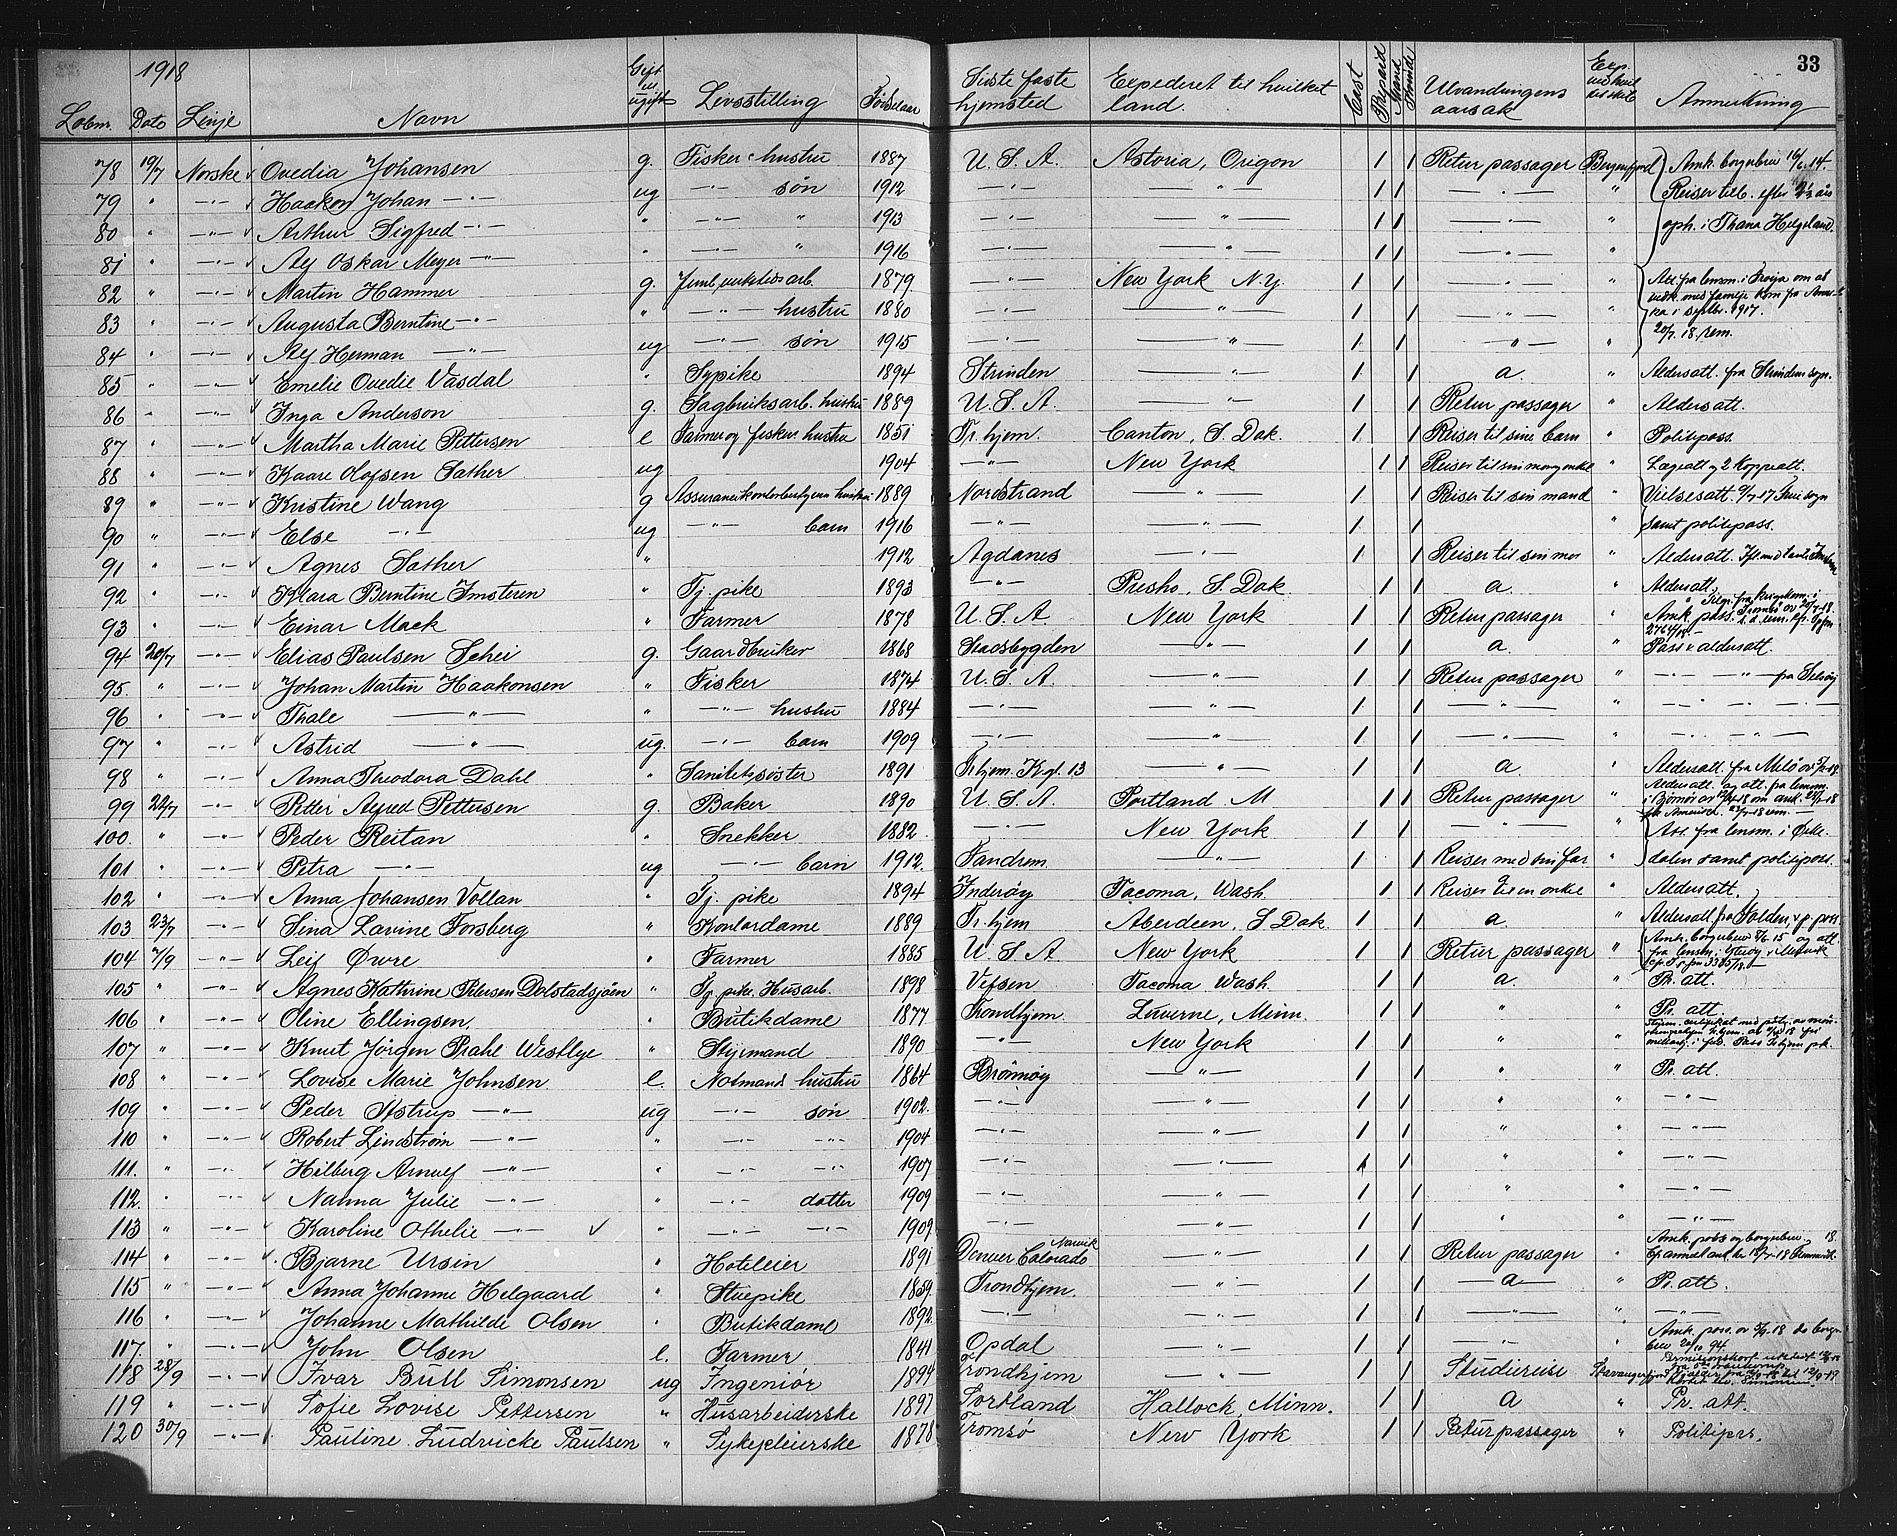 33
1918
Løbnr. Dato Linje Navn Gift el. ugift Livsstilling Fødselsaar Sidste faste hjemsted Expederet til hvilket land. Utvandringens aarsak Anmerkning
78 19/7 Norske Ovedia Johansen g. Fisker hustru 1887 U. S. A. Astoria, Origon 1 1 Retur passager Bergensfjord Amk. borgerbrev 16/6 14.
79 " -"- Haakon Johan -"- ug -"- søn 1912 -"- -"- 1 1 -"- " Reiser tilb. efter 2½ års
80 " -"- Arthur Sigfred -"- " -"- " 1913 -"- -"- 1 1 -"- " oph. i Thana Helgeland
81 " -"- Alf Oskar Meyer -"- " -"- " 1916 -"- -"- 1 1 -"- "
82 " -"- Martin Hammer g. 1879 -"- New York N.Y. 1 1 -"- " Att. fra lensm. i Frøya om at
83 " -"- Augusta Berntine -"- " -"- hustru 1880 -"- -"- 1 1 -"- " ka i septbr. 1917.
84 " -"- Alf Herman -"- ug -"- søn 1915 -"- 1 1 -"- " 20/7 18.
85 " -"- Emelie Ovedie Vasdal " Sypike 1894 Strinden -"- 1 1 a. " Aldersatt. fra Strinden sogn.
86 " -"- Inga Anderson g. Sagbruksarb. hustru 1889 U. S. A. -"- 1 1 Retur passager " Aldersatt.
87 " -"- Martha Marie Pettersen e Farmer og fisker hustru 1851 Tr. hjem. Canton, S. Dak. 1 1 Reiser til sine barn " Politipass.
88 " -"- Kaare Olofsen Sather ug 1904 -"- New York 1 1 Reiser til sin mor " Lægeatt og 2 Koppeatt.
89 " -"- Kristine Wang g 1889 Nordstrand -"- 1 1 Reiser til sin mand " Vielsesatt.
90 " -"- Else -"- ug -"- barn 1916 -"- -"- 1 1 " samt politipass.
91 " -"- Agnes Sather " 1912 Agdanes -"- 1 1 Reiser til sin mor " Aldersatt.
92 " -"- Klara Berntine Imsteren " Tj. pike 1893 -"- Presho, S. Dak. 1 1 a. " Aldersatt.
93 " -"- Einar Mack " Farmer 1878 U. S. A. New York 1 1 Retur passager " Amk. pass.
94 20/7 -"- Elias Paulsen Schei g. Gaardbruker 1868 Stadsbygden -"- 1 1 a. " Pass & aldersatt.
95. " -"- Johan Martin Haakonsen " Fisker 1874 U. S. A. -"- 1 1 Retur passager " -"- -"- fra Selsøy
96 " -"- Thale -"- " -"- hustru 1884 -"- -"- 1 1 -"- " -"- -"-
97 " -"- Astrid -"- ug. -"- barn 1909 -"- -"- 1 1 -"- " -"- -"-
98 " -"- Anna Theodora Dahl " Sanitetssøster 1891 Tr. hjem. Kgt. 13 -"- 1 1 a. " Aldersatt. fra Melø
99 22/7 -"- Petter Alfred Pettersen g. Baker 1890 U. S. A. Portland. M 1 1 Retur passager " Aldersatt. og att. fra lensm.
100. " -"- Peder Reitan " Snekker 1882 -"- New York 1 1 -"- " Att. fra lensm. i Ørke-
101 " -"- Petra -"- ug -"- barn 1912. Tandrem. -"- 1 1 Reiser med sin far " dalen samt politipass.
102 " -"- Anna Johansen Vollan " Tj. pike 1894 Inderøy Tacoma, Wash. 1 1 Reiser til en onkel " Aldersatt.
103 23/7 -"- Sina Lavine Forsberg " Kontordame 1889 Tr. hjem Aberdeen, S Dak. 1 1 a. " Aldersatt. fra Folden, & p. pass
104 7/9 -"- Leif Øvre " Farmer 1885 U. S. A New York 1 1 Retur passager " Amk. borgerbrev
105 " -"- Agnes Kathrine Petersen Dolstadsjøen " Tj. pike. Husarb. 1898 Vefsen Tacoma Wash. 1 1 a. " Pr. att.
106 " -"- Oline Ellingsen. " Butikdame 1877 Trondhjem. Luverne, Minn. 1 1 " " Pr. att.
107 " -"- Knut Jørgen Prahl Westbye " Styrmand 1890 -"- New York 1 1 " "
108 " -"- Lovise Marie Johnsen e. Notmand hustru 1864 Brønnøy -"- 1 1 " " Pr. att.
109 " -"- Peder Astrup -"- ug -"- søn 1902. -"- -"- 1 1 " -"-
110 " -"- Robert Lindstrøm -"- " -"- -"- 1904 -"- -"- 1 1 " -"-
111. " -"- Hilberg Arnulf -"- " -"- -"- 1907 -"- -"- 1 1 " -"-
112. " -"- Nanna Julie -"- " -"- datter 1909 -"- -"- 1 1 " -"-
113 " -"- Karoline Othelie -"- " -"- -"- 1909 -"- -"- 1 1 " -"-
114 " -"- Bjarne Ursin " Hoteleier 1891 Denver Colorado Narvik -"- 1 1 Retur passager " Amk. pass og borgerbrev
115 " -"- Anna Johanne Helgaard " Stuepike 1859 Trondhjem. -"- 1 1 -a- " Pr. att.
116 " -"- Johanne Mathilde Olsen " Butikdame 1892 -"- -"- 1 1 -"- " -"-
117. " -"- John Olsen e. Farmer 1841 Opdal -"- 1 1 -"- " Amk. pass.
118 28/9 -"- Ivar Bull Simonsen ug Ingeniør 1894 Trondhjem -"- 1 1 Studiereise Stavangerfjord
119 " -"- Sofie Lovise Pettersen " Husarbeiderske 1897 Sortland Hallock, Minn. 1 1 a " Pr. att.
120 30/9 -"- Pauline Ludvicke Paulsen " Sykepleierske 1878 Tromsø New York 1 1 Retur passager " Politipas.